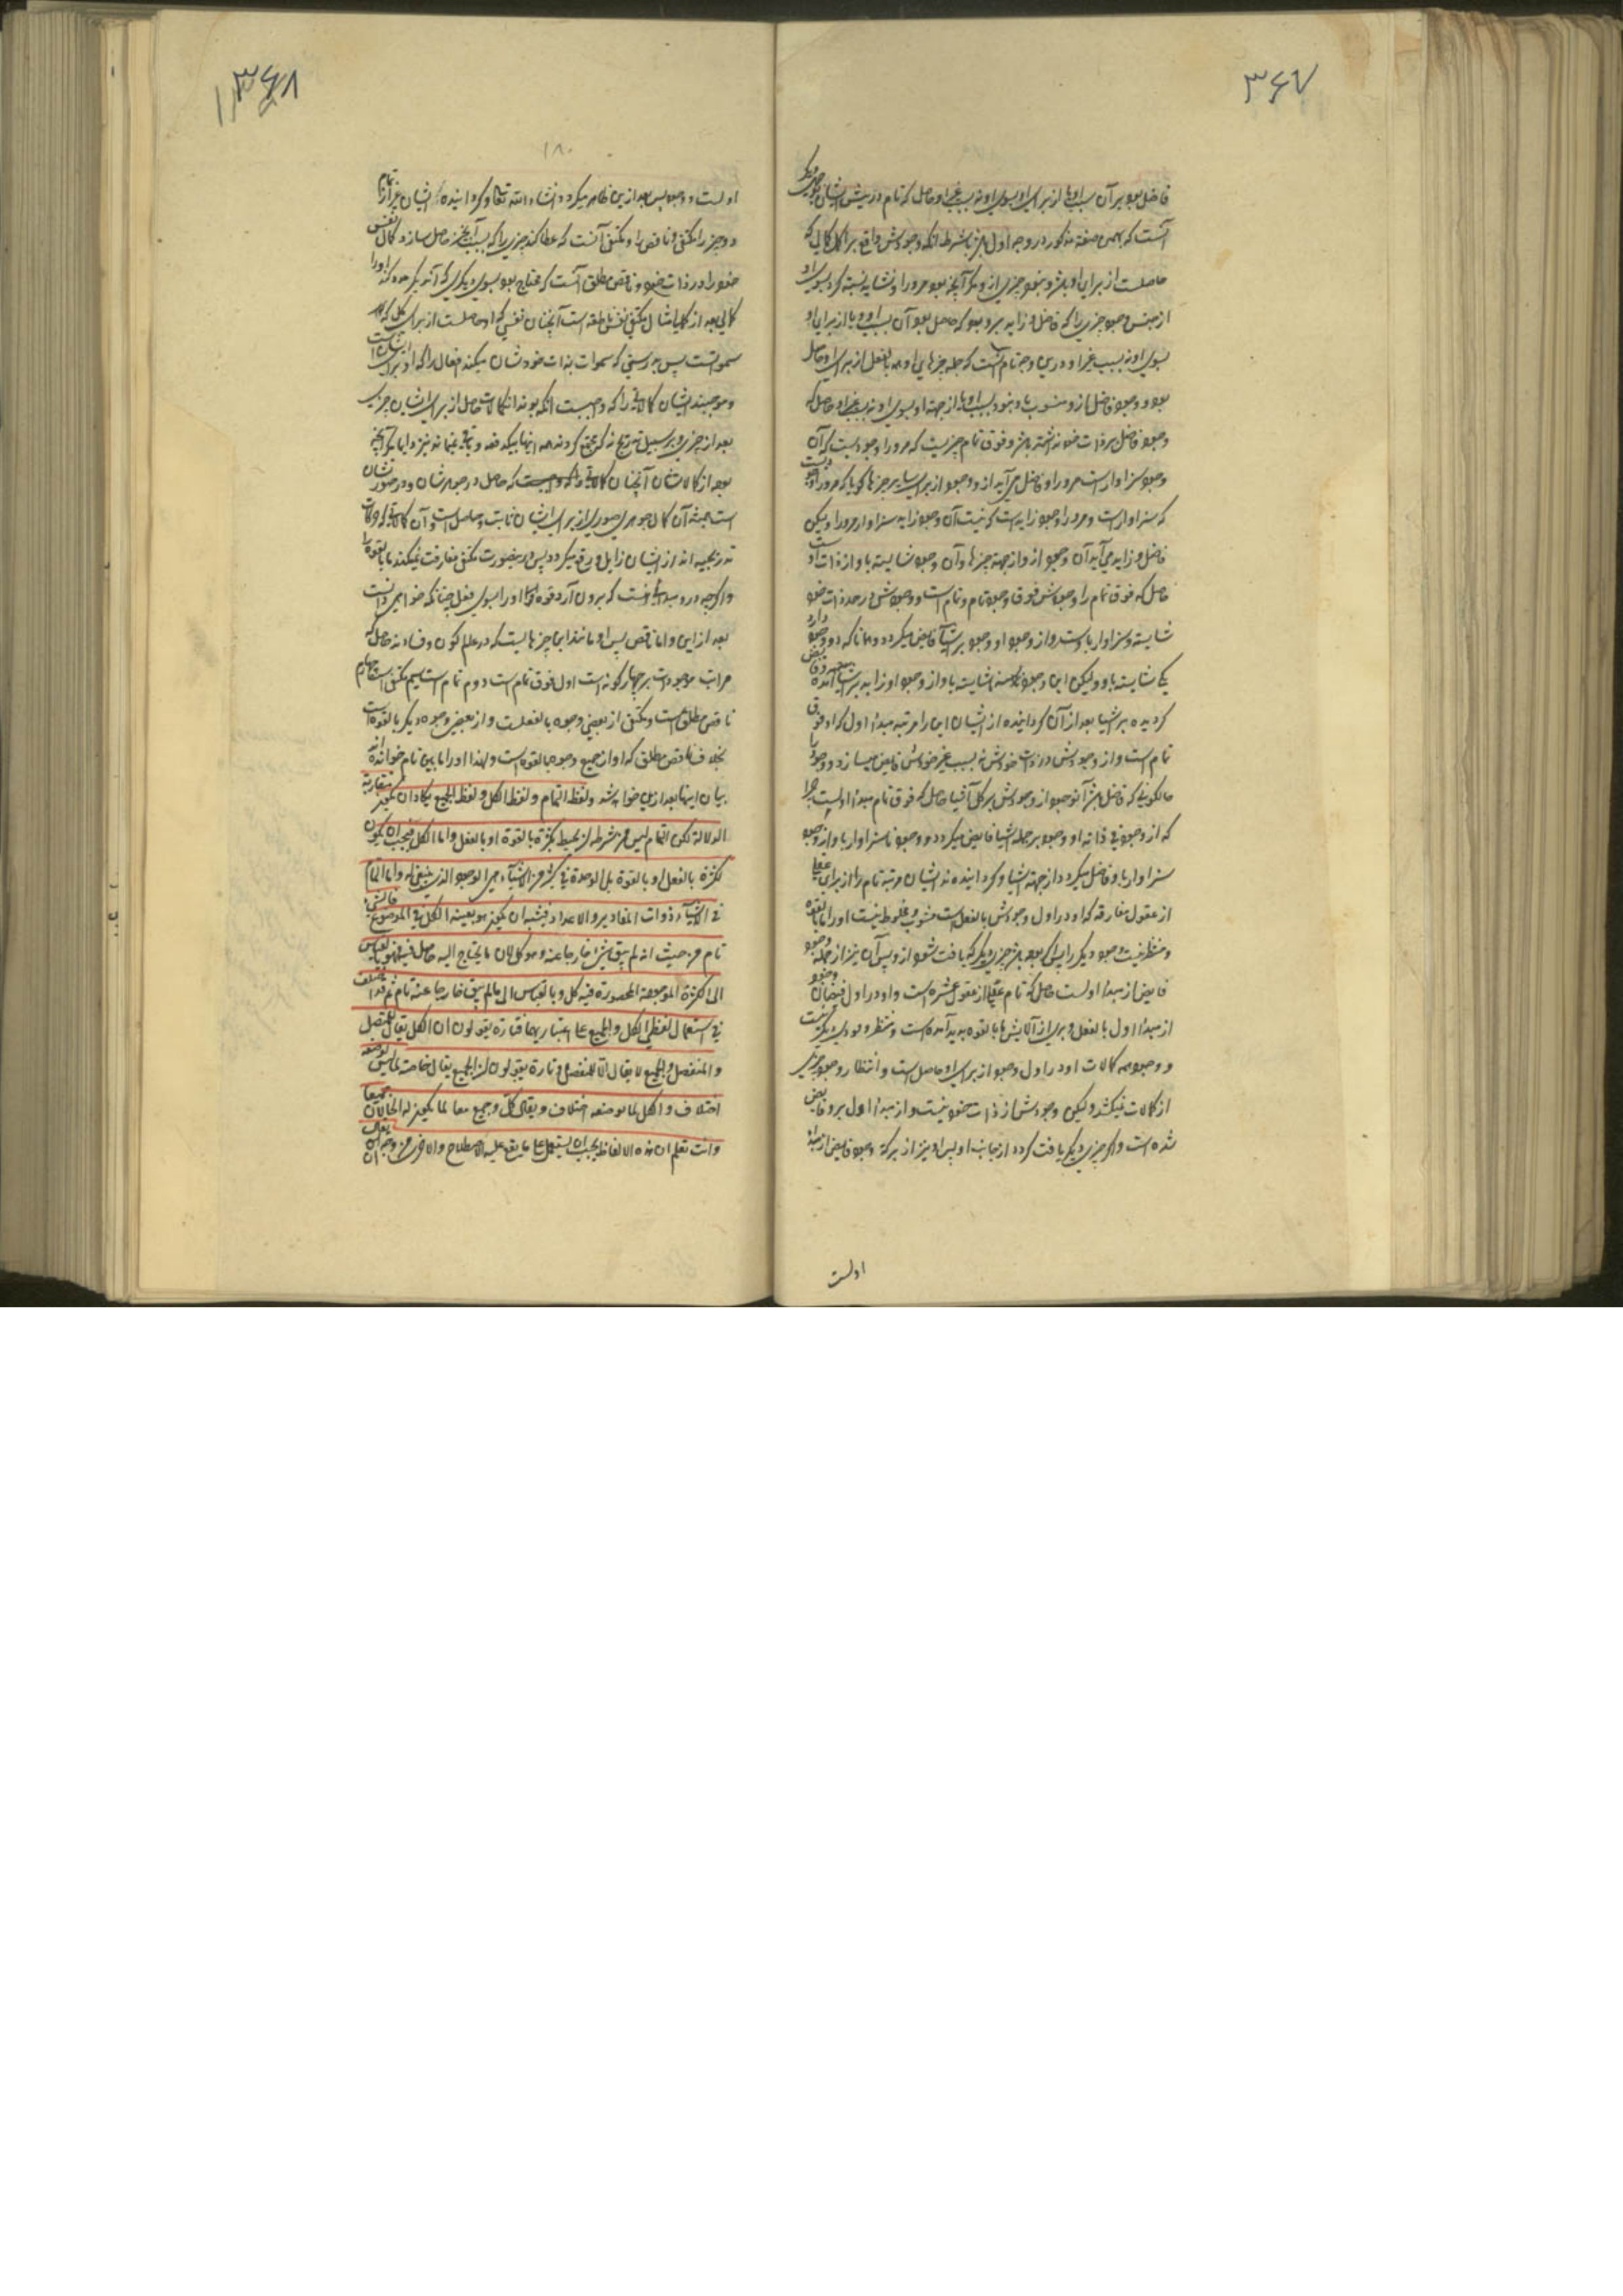 ۳۶۷
فاضل بود بر آن بسبب او یا از برای او بسوی او نه بسبب غیر او حاصل که تام در پیش ایشان
آنست که بهمین صفة مذکور در وجه اول باشد بشرط آنکه وجودش واقع بر اکمل کمالی که
حاصلست از برای او باشد و نبود چیزی ازو مگر آنچه بود مر او را و نشاید نسبة کرد بسوی او
از جنس وجود چیزی را که فاضل و زاید برو بود که حاصل بود آن بسبب او و یا از برای او
بسوی او نه بسبب غیر او و درین وجه تام آنست که جمله چیزهای او همه بالفعل از برای او حاصل
بود و وجود فاضل ازو منسوب باو نبود
وجود فاضل بر ذات خود نداشته باشد و فوق تمام چیزیست که مر او را وجودیست که آن
وجود سزاوار است مر او را و فاضل می آید ازو وجود از برای سایر چیزها گویا که مر او را
که سزاوار است و مر او را وجود زاید است که نیست آن وجود زاید سزاوار مر او را و لیکن
فاضل و زاید می آید آن وجود ازو از جهة چیزها و آن وجود شایسته باو از ذات او
حاصل که فوق تمام را وجودش فوق وجود تام و تمام است و وجودش در حد ذات خود
شایسته و سزاوار باوست و از وجود او وجود بر اشیا فایض میگردد و همانا که دو وجود دارد
یکی شایسته باو و لیکن این وجود شایسته باو از وجود او زاید بر اشیا آمده
گردیده بر اشیا بعد از آن گرداننده از ایشان این را مرتبه مبدأ اول که او فوق
تمام است و از وجودش در ذات خودش نه بسبب غیر خودش فایض میسازد وجود را
حالکونیکه فاضل باشد آنوجود از وجودش بر کل اشیا حاصل که فوق تمام مبدأ اولیست
که از وجود فی ذاته او وجود بر جمله اشیا فایض میگردد و وجود ناسزاوار باو از وجود
سزاوار باو فاضل میگردد از جهة اشیا و گردانیده اند ایشان مرتبه تام را از برای عقلی
از عقول مفارقه که او در اول وجودش بالفعل است مشوب و مخلوط نیست او را ما بالقوه
و منتظر نیست وجود دیگر را پس اگر بوده باشد چیزی دیگر که یافت شود ازو پس آن نیز از جمله وجود
فایض از مبدأ اولست حاصل که تام عقلی از عقول عشره است و او در اول
از مبدأ اول بالفعل و بری از آلایشها بالقوه پدید آمده است و منتظر وجود دیگر نیست
و وجود همه کمالات او در اول وجود از برای او حاصل است و انتظار وجود چیزی
از کمالات نمیکشد و لیکن وجودش از ذات خود نیست و از مبدأ اول برو فایض
شده است و اگر چیزی دیگر یافت گردد از جانب او پس او نیز از برکة وجود فایض از مبدأ
اولست
۳۶۸
۱۸۰
اولست و وجود پس بعد ازین ظاهر میگردد انشاء الله تعالی و گردانیده اند ایشان غیر از تمام
دو چیز را مکتفی و ناقص را و مکتفی آنست که عطا کند چیزی را که بسبب آنچیز حاصل سازد کمال نفس
خود را در ذات خود و ناقص مطلق آنست که محتاج بود بسوی دیگری که آن دیگر مدد کند او را
کمالی بعد از کمالی مثال مکتفی نفس ناطقه است آنچنان نفسی که او حاصلست از برای کل که
سمواتست پس بدرستی که سموات بذات خودشان میکنند افعال را که او از برای ایشان است
و موجبند ایشان کمالاتی را که واجبست آنکه بوند آن کمالات حاصل از برای ایشان چیزی
بعد از چیزی و بر سبیل تدریج نه که مجتمع گردند همه اینها بیکدفعه و باقی نمانند نیز دایما مگر آنچه
بعد از کمالاتشان آنچنان کمالاتی را که واجبست که حاصل در جوهرشان و در صورشان
است همیشه آن کمال جوهری و صوری از برای ایشان ثابت و حاصل است و آن کمالاتی که حرکات
تدریجیه اند از ایشان زایل و رفع میگردد پس درینصورت مکتفی مفارقت نمیکند ما بالقوه را
و اگرچه درو مبدأیست که بیرون آرد قوه او را بسوی فعل چنانکه خواهی دانست
بعد از این و اما ناقص پس او مانند این چیزهایست که در عالم کون و فسادند حاصل که
مراتب موجودات بر چهار گونه است اول فوق تمام است دوم تمام است سیم مکتفی است چهارم
ناقص مطلق است و مکتفی از بعضی وجوه بالفعلست و از بعضی وجوه دیگر بالقوه است
بخلاف ناقص مطلق که او از جمیع وجوه بالقوه است و لهذا او را ما بین تام خوانده اند
بیان اینها بعد ازین خواهد شد و لفظ التمام و لفظ الکل و لفظ الجمیع یکاد ان یکون متقاربة
الدلالة لکن التمام لیس من شرطه ان یحیط بکثرة بالقوة او بالفعل و اما الکل فیجب ان یکون
لکثرة بالفعل او بالقوة بل الوحدة فی کثیر من الاشیاء هی الوجود الذی ینبغی له و اما التمام
فی الاشیاء ذوات المقادیر و الاعداد فیشبه ان یکون هو بعینه الکل فی الموضوع فالشیء
تام من حیث انه لم یبق شیء خارجا عنه و هو کل لان ما یحتاج الیه حاصل فیه فهو بالقیاس
الی الکثرة الموجودة المحصورة فیه کل و بالقیاس الی ما لم یبق خارجا عنه تام ثم قد اختلف
فی استعمال لفظی الکل و الجمیع علی اعتباریهما فتارة یقولون ان الکل یقال للمتصل
و المنفصل و الجمیع لا یقال الا للمنفصل و تارة یقولون ان الجمیع یقال خاصة لما لیس لوضعه
اختلاف و الکل لما لوضعه اختلاف و یقال کل و جمیع معا لما یکون له الحالان جمیعا
و انت تعلم ان هذه الالفاظ یجب ان یستعمل علی ما یقع علیه الاصطلاح و الاحری من وجه ان یقال